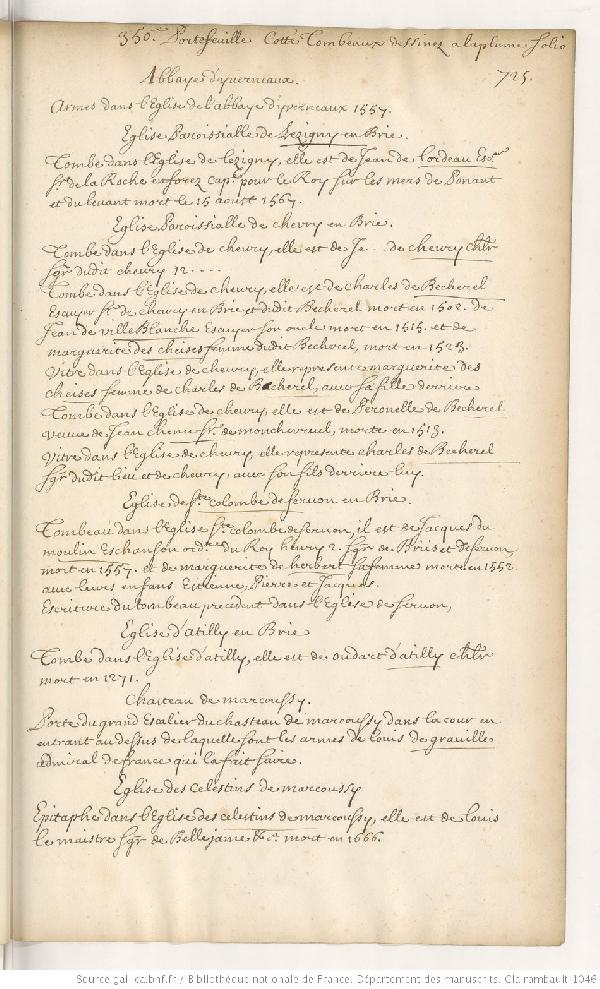 350. Portefeuille Cotté Tombeaux dessinez a la plume folio
725.
Abbaye d'yverneaux.
Armes dans l'Eglise de l'abbaye d'yverneaux 1557.
Eglise Paroissialle de Lezigny en Brie.
Tombe dans l'Eglise de Lezigny, elle est de Jean de Loideau Escer
sr. de la Roche en forez cape. pour le Roy sur les mers de Ponant
et du levant mort le 15 aoust 1567.
Eglise Paroissialle de chevry en Brie.
Tombe dans l'Eglise de chevry, elle est de Je... de chevry chlr
sgr dudit chevry 12....
Tombe dans l'Eglise de chevry, elle est de charles de Becherel
Escuyer sr. de chevry en Brie et dudit Becherel mort en 1502. de
Jean de ville Blanche Escuyer son oncle mort en 1515. et de
marguerite des cheises femme dudit Becherel, mort en 1523.
vitre dans l'Eglise de chevry, elle represente marguerite des
cheises femme de charles de Becherel, avec sa fille derriere
Tombe dans l'Eglise de chevry elle est de Peronelle de Becherel
veuve de Jean chenu sr. de monchevreul, morte en 1513.
vitre dans l'Eglise de chevry, elle represente charles de Becherel
sgr dudit lieu et de chevry, avec son fils derriere luy.
Eglise de ste. colombe de servon en Brie.
Tombeau dans l'Eglise ste. colombe de servon, il est de Jacques du
moulin Eschanson ordre. du Roy henry 2. sgr de Briis et de servon,
mort en 1557. et de marguerite de herbert sa femme morte en 1552.
avec leurs enfans Estienne, Pierre et Jacques.
Escriture du tombeau precedent dans l'Eglise de servon,
Eglise d'atilly en Brie
Tombe dans l'Eglise d'atilly, elle est de oudart d'atilly chlr
mort en 1271.
Chasteau de marcoussy.
Porte du grand Escalier du chasteau de marcoussy dans la cour en
entrant au dessus de laquelle sont les armes de Louis de graville
admiral de france qui la fait faire.
Eglise des celestins de marcoussy
Epitaphe dans l'Eglise des celestins de marcoussy, elle est de Louis
le maistre sgr de Bellejame &ca. mort en 1666.
Source gallica.bnf.fr / Bibliothèque nationale de France. Département des manuscrits. Clairambault 1046